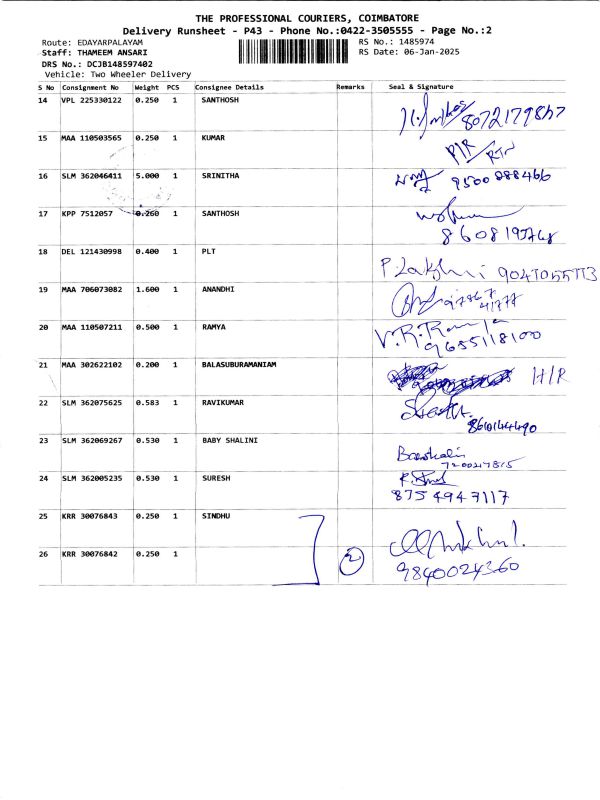 THE PROFESSIONAL COURIERS, COIMBATORE
Delivery Runsheet - P43 - Phone No.:0422-3505555 - Page No.:2
Route: EDAYARPALAYAM RS No.: 1485974
Staff: THAMEEM ANSARI RS Date: 06-Jan-2025
DRS No.: DCJB148597402
Vehicle: Two Wheeler Delivery
S No Consignment No Weight PCS Consignee Details Remarks Seal & Signature
14 VPL 225330122 0.250 1 SANTHOSH
15 MAA 110503565 0.250 1 KUMAR
16 SLM 362046411 5.000 1 SRINITHA 9500888466
17 KPP 7512057 0.260 1 SANTHOSH
18 DEL 121430998 0.400 1 PLT
19 MAA 706073082 1.600 1 ANANDHI
20 MAA 110507211 0.500 1 RAMYA V.R.Ramya 9655118100
21 MAA 302622102 0.200 1 BALASUBURAMANIAM H/R
22 SLM 362075625 0.583 1 RAVIKUMAR 8610144490
23 SLM 362069267 0.530 1 BABY SHALINI
24 SLM 362005235 0.530 1 SURESH 8754947117
25 KRR 30076843 0.250 1 SINDHU
26 KRR 30076842 0.250 1 2 9840024360